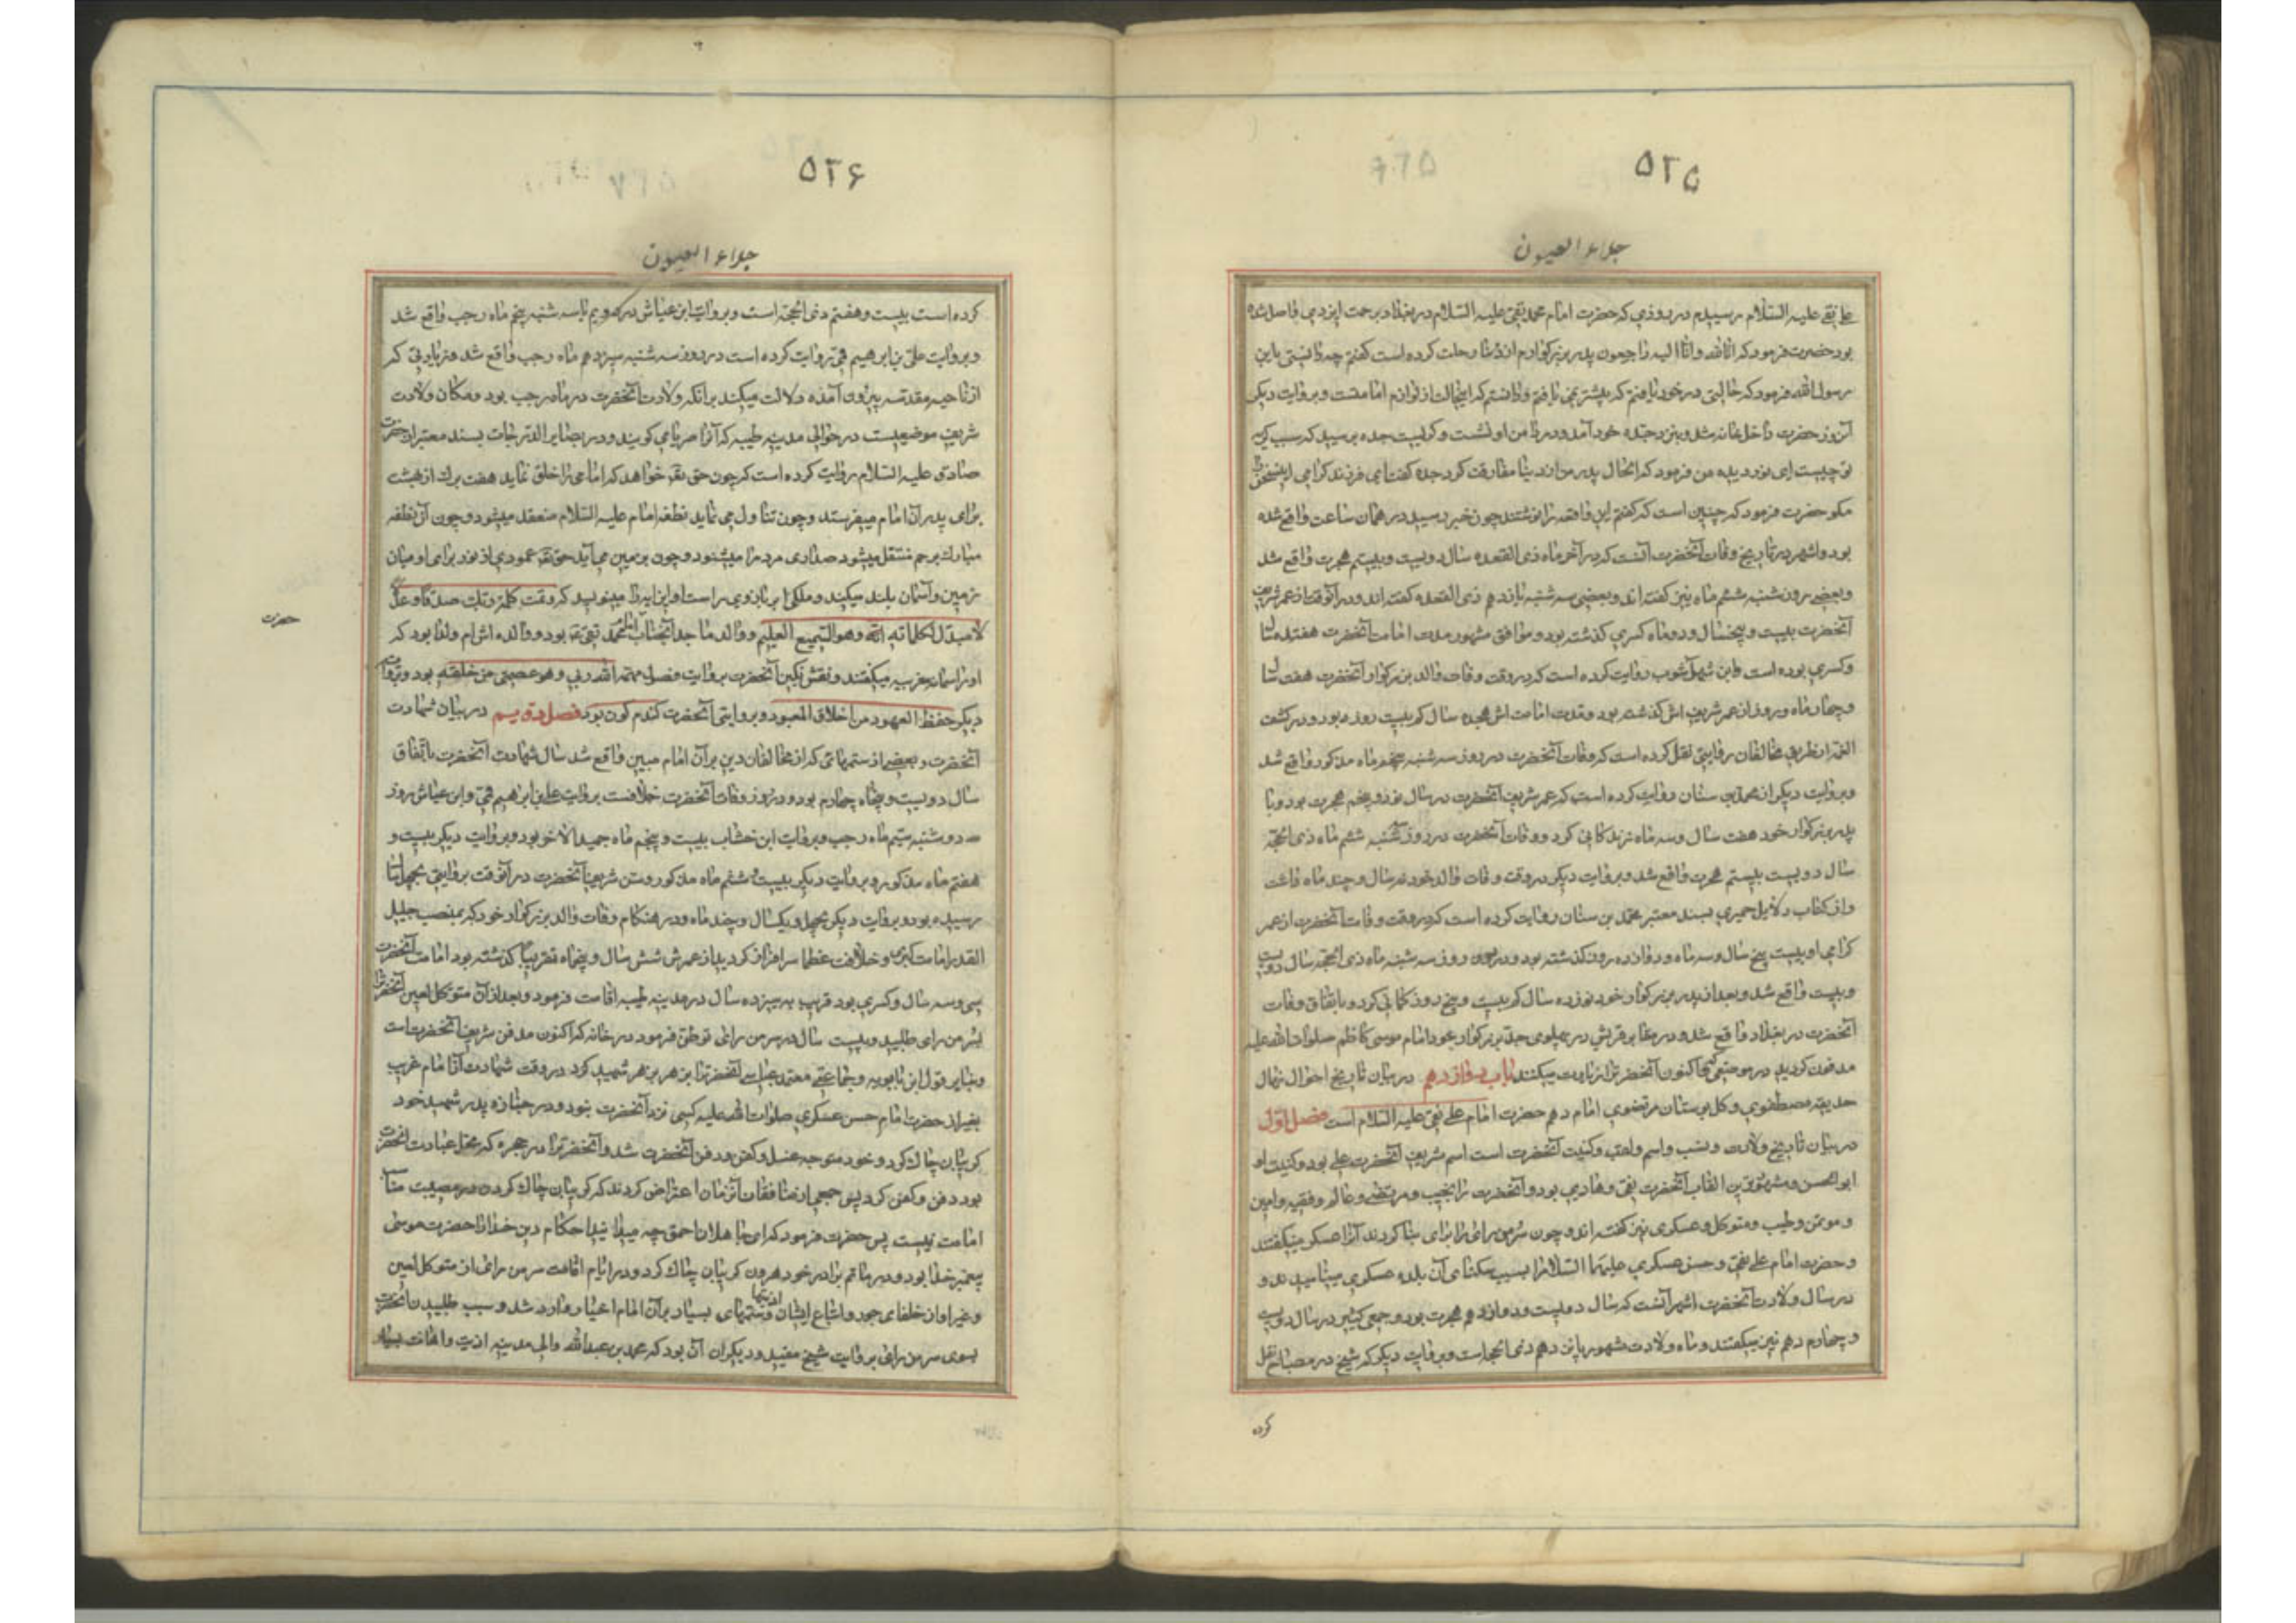 ۵۲۵
جلاء العیون
علی نقی علیه السلام رسیدم در روزی که حضرت امام محمد تقی علیه السلام در بغداد برحمت ایزدی واصل شده
بود حضرت فرمود که انا لله وانا الیه راجعون پدر بزرکوارم از دنیا رحلت کرده است کفتم چه دانستی یابن
رسول الله فرمود که حالتی در خود یافتم که پیشتر نمی یافتم و دانستم که اینحالت از لوازم امامتست و بروایت دیکر
آنروز حضرت داخل خانه شد و بنزد جده خود آمد و در دامن او نشست و کریست جده پرسید که سبب کریه
تو چیست ای نور دیده من فرمود که الحال پدر من از دنیا مفارقت کرد جده کفت ای فرزند کرامی این سخن
مکو حضرت فرمود که چنین است که کفتم این واقعه را نوشتند چون خبر رسید در همان ساعت واقع شده
بود و اشهر در تاریخ وفات آنحضرت آنست که در آخر ماه ذی القعده سال دویست و بیستم هجرت واقع شد
و بعضی روز شنبه ششم ماه نیز کفته اند و بعضی سه شنبه یازدهم ذی القعده کفته اند و در آنوقت از عمر شریف
آنحضرت بیست و پنجسال و دو ماه کسری کذشته بود و موافق مشهور مدت امامت آنحضرت هفتده سال
و کسری بوده است و ابن شهر آشوب روایت کرده است که در وقت وفات والد بزرکوار آنحضرت هفت سال
و چهار ماه و دو روز از عمر شریف اش کذشته بود و مدت امامت اش هجده سال کم بیست روز بود و در کشف
الغمه از طریق مخالفان روایتی نقل کرده است که وفات آنحضرت در روز سه شنبه پنجم ماه مذکور واقع شد
و بروایت دیکر از محمد بن سنان روایت کرده است که عمر شریف آنحضرت در سال نود و پنجم هجرت بود و با
پدر بزرکوار خود هفت سال و سه ماه زندکانی کرد و وفات آنحضرت در روز شنبه ششم ماه ذی الحجه
سال دویست بیستم هجرت واقع شد و بروایت دیکر در وقت وفات والد خود نه سال و چند ماه داشت
و از کتاب دلایل حمیری بسند معتبر محمد بن سنان روایت کرده است که در وقت وفات آنحضرت از عمر
کرامی او بیست پنج سال و سه ماه و دوازده روز کذشته بود و در روز سه شنبه ماه ذی الحجه سال دویست
و بیست واقع شد و بعد از پدر بزرکوار خود نوزده سال کم بیست و پنج روز زندکانی کرد و باتفاق وفات
آنحضرت در بغداد واقع شد و در مقابر قریش در پهلوی جد بزرکوار خود امام موسی کاظم صلوات الله علیه
مدفون کردید در موضعی که اکنون آنحضرتا زیارت میکنند باب دوازدهم در بیان تاریخ احوال نهال
حدیقه مصطفوی و کل بوستان مرتضوی امام دهم حضرت امام علی نقی علیه السلام است فصل اول
در بیان تاریخ ولادت و نسب و اسم و لقب و کنیت آنحضرت است اسم شریف آنحضرت علی بود و کنیت او
ابو الحسن و مشهورترین القاب آنحضرت نقی و هادی بود و آنحضرت را نجیب و مرتضی و عالم و فقیه و امین
و موتمن و طیب و متوکل و عسکری نیز کفته اند و چون سر من رای را برای بنا کردند آنرا عسکر میکفتند
و حضرت امام علی نقی و حسن عسکری علیهما السلام را بسبب سکنای آن بلده عسکری مینامیدند و
در سال ولادت آنحضرت اشهر آنست که سال دویست و دوازدهم هجرت بود و جمعی کثیر در سال دویست
و چهاردهم نیز میکفتند و ماه ولادت مشهور پانزدهم ذی الحجه است و بروایت دیکر که شیخ در مصباح نقل
کرده
۵۲۶
جلاء العیون
کرده است بیست و هفتم ذی الحجه است و بروایت ابن عیاش در دویم یا سه شنبه پنجم ماه رجب واقع شد
و بروایت علی بن ابرهیم قمی روایت کرده است در روز سه شنبه سیزدهم ماه رجب واقع شد و زیارتی که
از ناحیه مقدسه بیرون آمده دلالت میکند بر انکه ولادت آنحضرت در ماه رجب بود و مکان ولادت
شریف موضعیست در حوالی مدینه طیبه که آنرا صریا می کویند و در بصایر الدرجات بسند معتبر از حضرت
صادق علیه السلام روایت کرده است که چون حق تعالی خواهد که امامی را خلق نماید هفت برک از بهشت
برای پدر آن امام میفرستد و چون تناول می نماید نطفه امام علیه السلام منعقد میشود و چون آن نطفه
مبارک برحم منتقل میشود صدای مردم را میشنود و چون بزمین می آید حق تعالی عمودی از نور برای او میان
زمین و آسمان بلند میکند و ملکی بر بازوی راست او این ایه را مینویسد که وتمت کلمة ربک صدقا وعدلا
لا مبدل لکلماته انه وهو السمیع العلیم و والد ماجد آنجناب امام محمد تقی بود و والده اش ام ولد بود که
او را سمانه مغربیه میکفتند و نقش نکین آنحضرت بروایت فصول مهمه الله ربی وهو عصمتی من خلقه بود و بروایت
دیکر حفظ العهود من اخلاق المعبود و بروایتی آنحضرت کندم کون بود فصل دویم در بیان شهادت
آنحضرت و بعضی از ستمهائی که از مخالفان دین بر آن امام مبین واقع شد سال شهادت آنحضرت باتفاق
سال دویست و پنجاه چهارم بود و در روز وفات آنحضرت خلافست بروایت علی بن ابرهیم قمی و ابن عیاش روز
دوشنبه سیم ماه رجب و بروایت ابن خشاب بیست و پنجم ماه جمید الاخر بود و بروایت دیکر بیست و
هفتم ماه مذکور و بروایت دیکر بیست ششم ماه مذکور و سن شریف آنحضرت در آنوقت بروایتی بچهل سال
رسیده بود و بروایت دیکر بچهل و یکسال و چند ماه و در هنکام وفات والد بزرکوار خود که بمنصب جلیل
القدر امامت کبری و خلافت عظما سرافراز کردید از عمرش شش سال و پنجماه تقریبا کذشته بود امامت آنحضرت
سی و سه سال و کسری بود قریب به سیزده سال در مدینه طیبه اقامت فرمود و بعد از آن متوکل لعین آنحضرترا
بسر من رای طلبید و بیست سال در سر من رای توطن فرمود در خانه که اکنون مدفن شریف آنحضرت است
و بنابر قول ابن بابویه و جماعتی معتمد عباسی آنحضرترا بزهر شهید کرد در وقت شهادت آن امام غریب
بغیر از حضرت امام حسن عسکری صلوات الله علیه کسی نزد آنحضرت نبود و در جنازه پدر شهید خود
کریبان چاک کرد و خود متوجه غسل و کفن و دفن آنحضرت شد و آنحضرترا در حجره که محل عبادت آنحضرت
بود دفن و کفن کرد پس جمعی از منافقان آنزمان اعتراض کردند که کریبان چاک کردن در مصیبت مناسب
امامت نیست پس حضرت فرمود که ای جاهلان احمق چه میدانید احکام دین خدا را حضرت موسی
پیغمبر خدا بود و در ماتم برادر خود هرون کریبان چاک کرد و در ایام اقامت سر من رای از متوکل لعین
و غیر او از خلفای جور و اتباع ایشان اذیتها و ستمهای بسیار بر آن امام اخیار وارد شد و سبب طلبیدن آنحضرت
بسوی سر من رای بروایت شیخ مفید و دیکران آن بود که محمد بن عبدالله والی مدینه اذیت و اهانت بسیار
حضرت